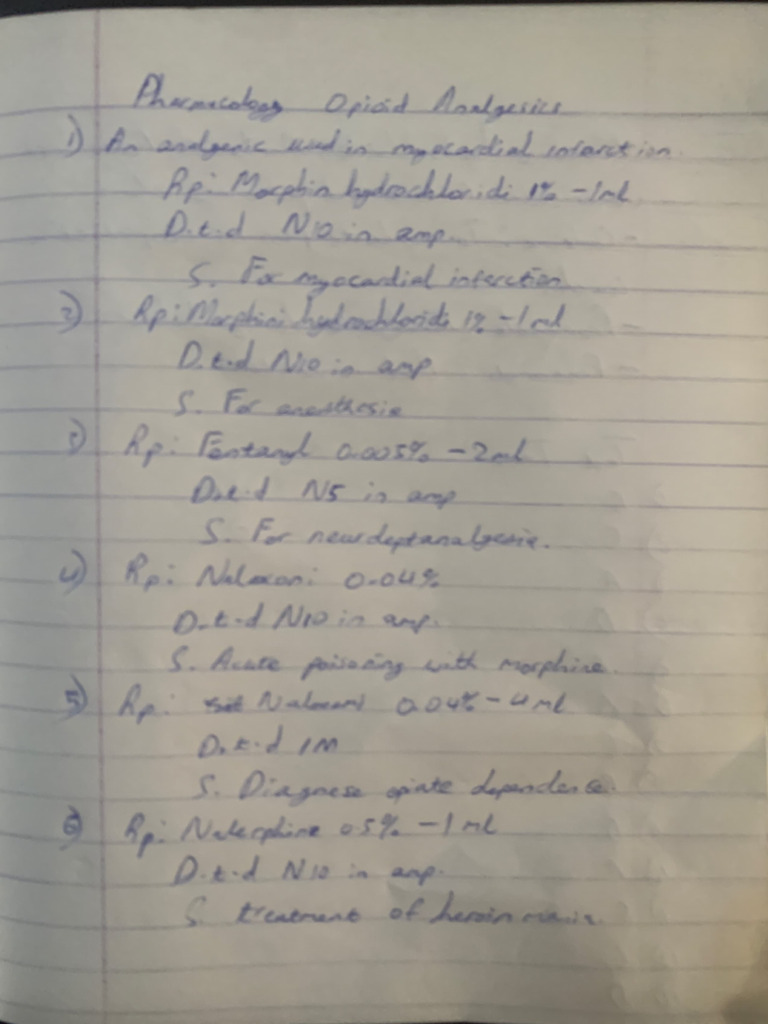 Pharmacology Opioid Analgesics
1) An analgenic used in myocardial infarction.
Rp: Morphin hydrochloridi 1% - 1ml
D.t.d N10 in amp.
S. For myocardial inferction
2) Rp: Morphini hydrochloridi 1% - 1ml
D.t.d N10 in amp
S. For anesthesia
3) Rp: Fentanyl 0.005% - 2ml
D.t.d N5 in amp
S. For neuroleptanalgesia.
4) Rp: Naloxoni 0.04%
D.t.d N10 in amp.
S. Acute poisoning with morphine.
5) Rp: Naloxoni 0.04% - 4ml
D.t.d 1M
S. Diagnese opiate dependence.
6) Rp: Nalorphine 0.5% - 1ml
D.t.d N10 in amp.
S. treatment of heroin mania.